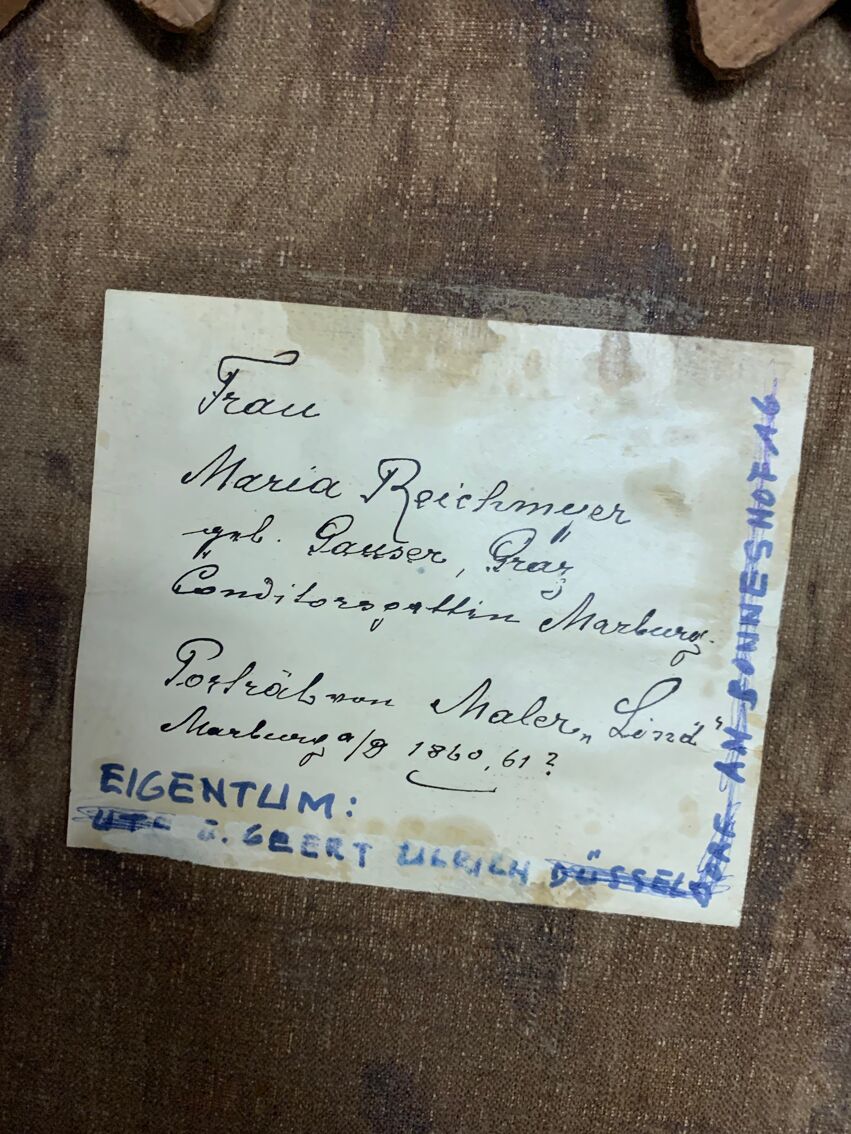 Frau
Maria Reichmeyer
geb. Gauser, Graz
Conditorsgattin Marburg.
Porträt von Maler „Lind"
Marburg a/D 1860, 61?
EIGENTUM:
UTE U. GEERT ULRICH DÜSSELDORF AM BONNESHOF 16